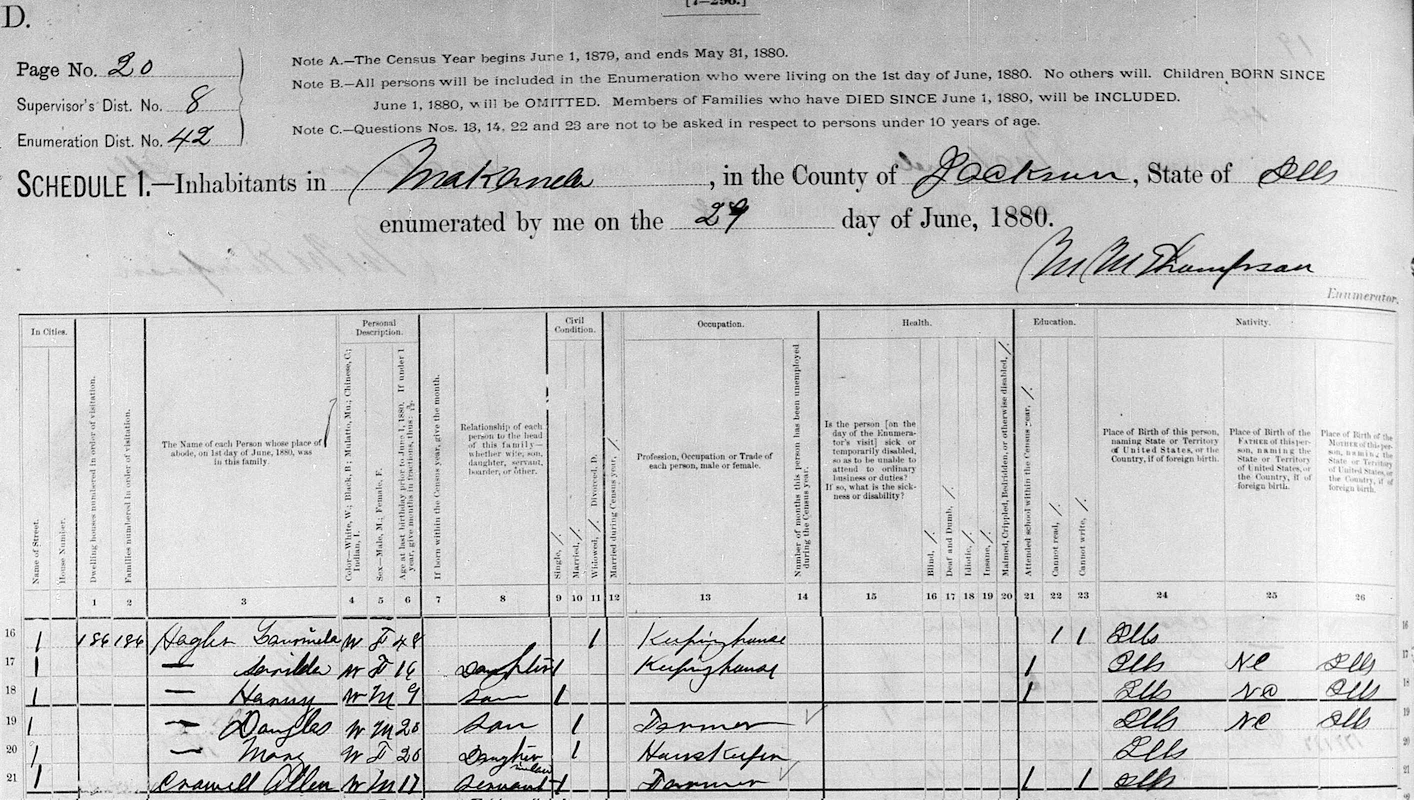 D.
[7—296.]
Page No. 20
Supervisor's Dist. No. 8
Enumeration Dist. No. 42
Note A.—The Census Year begins June 1, 1879, and ends May 31, 1880.
Note B.—All persons will be included in the Enumeration who were living on the 1st day of June, 1880. No others will. Children BORN SINCE
June 1, 1880, will be OMITTED. Members of Families who have DIED SINCE June 1, 1880, will be INCLUDED.
Note C.—Questions Nos. 13, 14, 22 and 23 are not to be asked in respect to persons under 10 years of age.
SCHEDULE 1.—Inhabitants in Makanda, in the County of Jackson, State of Ills
enumerated by me on the 29 day of June, 1880.
M M Thompson
Enumerator.
In Cities.
Name of Street.
House Number.
Dwelling houses numbered in order of visitation.
Families numbered in order of visitation.
The Name of each Person whose place of
abode, on 1st day of June, 1880, was
in this family.
Personal
Description.
Color—White, W.; Black, B.; Mulatto, Mu.; Chinese, C.;
Indian, I.
Sex—Male, M.; Female, F.
Age at last birthday prior to June 1, 1880. If under 1
year, give months in fractions, thus: 3/12.
If born within the Census year, give the month.
Relationship of each
person to the head
of this family—
whether wife, son,
daughter, servant,
boarder, or other.
Civil
Condition.
Single, /.
Married, /.
Widowed, /. Divorced, D.
Married during Census year, /.
Occupation.
Profession, Occupation or Trade of
each person, male or female.
Number of months this person has been unemployed
during the Census year.
Health.
Is the person [on the
day of the Enumera-
tor's visit] sick or
temporarily disabled,
so as to be unable to
attend to ordinary
business or duties?
If so, what is the sick-
ness or disability?
Blind, /.
Deaf and Dumb, /.
Idiotic, /.
Insane, /.
Maimed, Crippled, Bedridden, or otherwise disabled, /.
Education.
Attended school within the Census year, /.
Cannot read, /.
Cannot write, /.
Nativity.
Place of Birth of this person,
naming State or Territory
of United States, or the
Country, if of foreign birth.
Place of Birth of the
FATHER of this per-
son, naming the
State or Territory
of United States, or
the Country, if of
foreign birth.
Place of Birth of the
MOTHER of this per-
son, naming the
State or Territory
of United States, or
the Country, if of
foreign birth.
1 2 3 4 5 6 7 8 9 10 11 12 13 14 15 16 17 18 19 20 21 22 23 24 25 26
16 / 186 186 Hagler W F 48 / Keeping house / / Ills 16
17 / — W F 16 Daughter / Keeping house / Ills NC Ills 17
18 / — W M 9 Son / / Ills NC Ills 18
19 / — Douglas W M 20 Son / Farmer Ills NC Ills 19
20 / — Mary W F 20 Daughter inlaw / Ills 20
21 / Allen W M 17 Servant / Farmer / / Ills 21